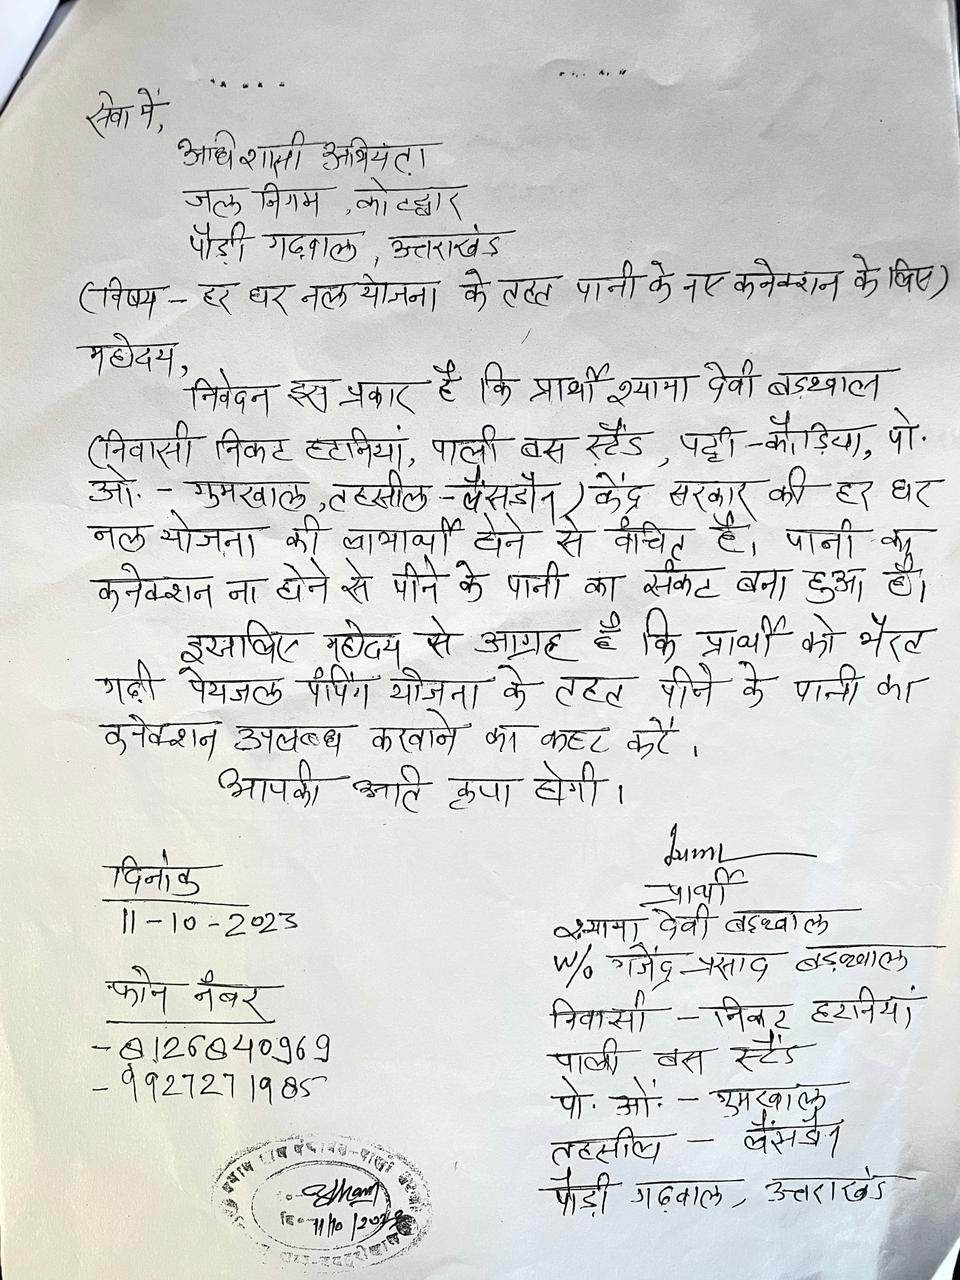 सेवा में,
अधिशासी अभियंता
जल निगम, कोटद्वार
पौड़ी गढ़वाल, उत्तराखंड
(विषय - हर घर नल योजना के तहत पानी के नए कनेक्शन के लिए)
महोदय,
निवेदन इस प्रकार है कि प्रार्थी श्यामा देवी बड़थ्वाल
(निवासी निकट हटनियां, पाली बस स्टैंड, पट्टी - कौड़िया, पो.
ओ. - गुमखाल, तहसील - लैंसडौन) केंद्र सरकार की हर घर
नल योजना की लाभार्थी होने से वंचित है। पानी का
कनेक्शन ना होने से पीने के पानी का संकट बना हुआ है।
इसलिए महोदय से आग्रह है कि प्रार्थी को भैरव
गढ़ी पेयजल पंपिंग योजना के तहत पीने के पानी का
कनेक्शन उपलब्ध करवाने का कष्ट करें।
आपकी अति कृपा होगी।
दिनांक
11-10-2023
फोन नंबर
- 8126840969
- 9927271985
प्रार्थी
श्यामा देवी बड़थ्वाल
W/o गजेंद्र प्रसाद बड़थ्वाल
निवासी - निकट हटनियां
पाली बस स्टैंड
पो. ओ. - गुमखाल
तहसील - लैंसडौन
पौड़ी गढ़वाल, उत्तराखंड
दि. 11/10/2023